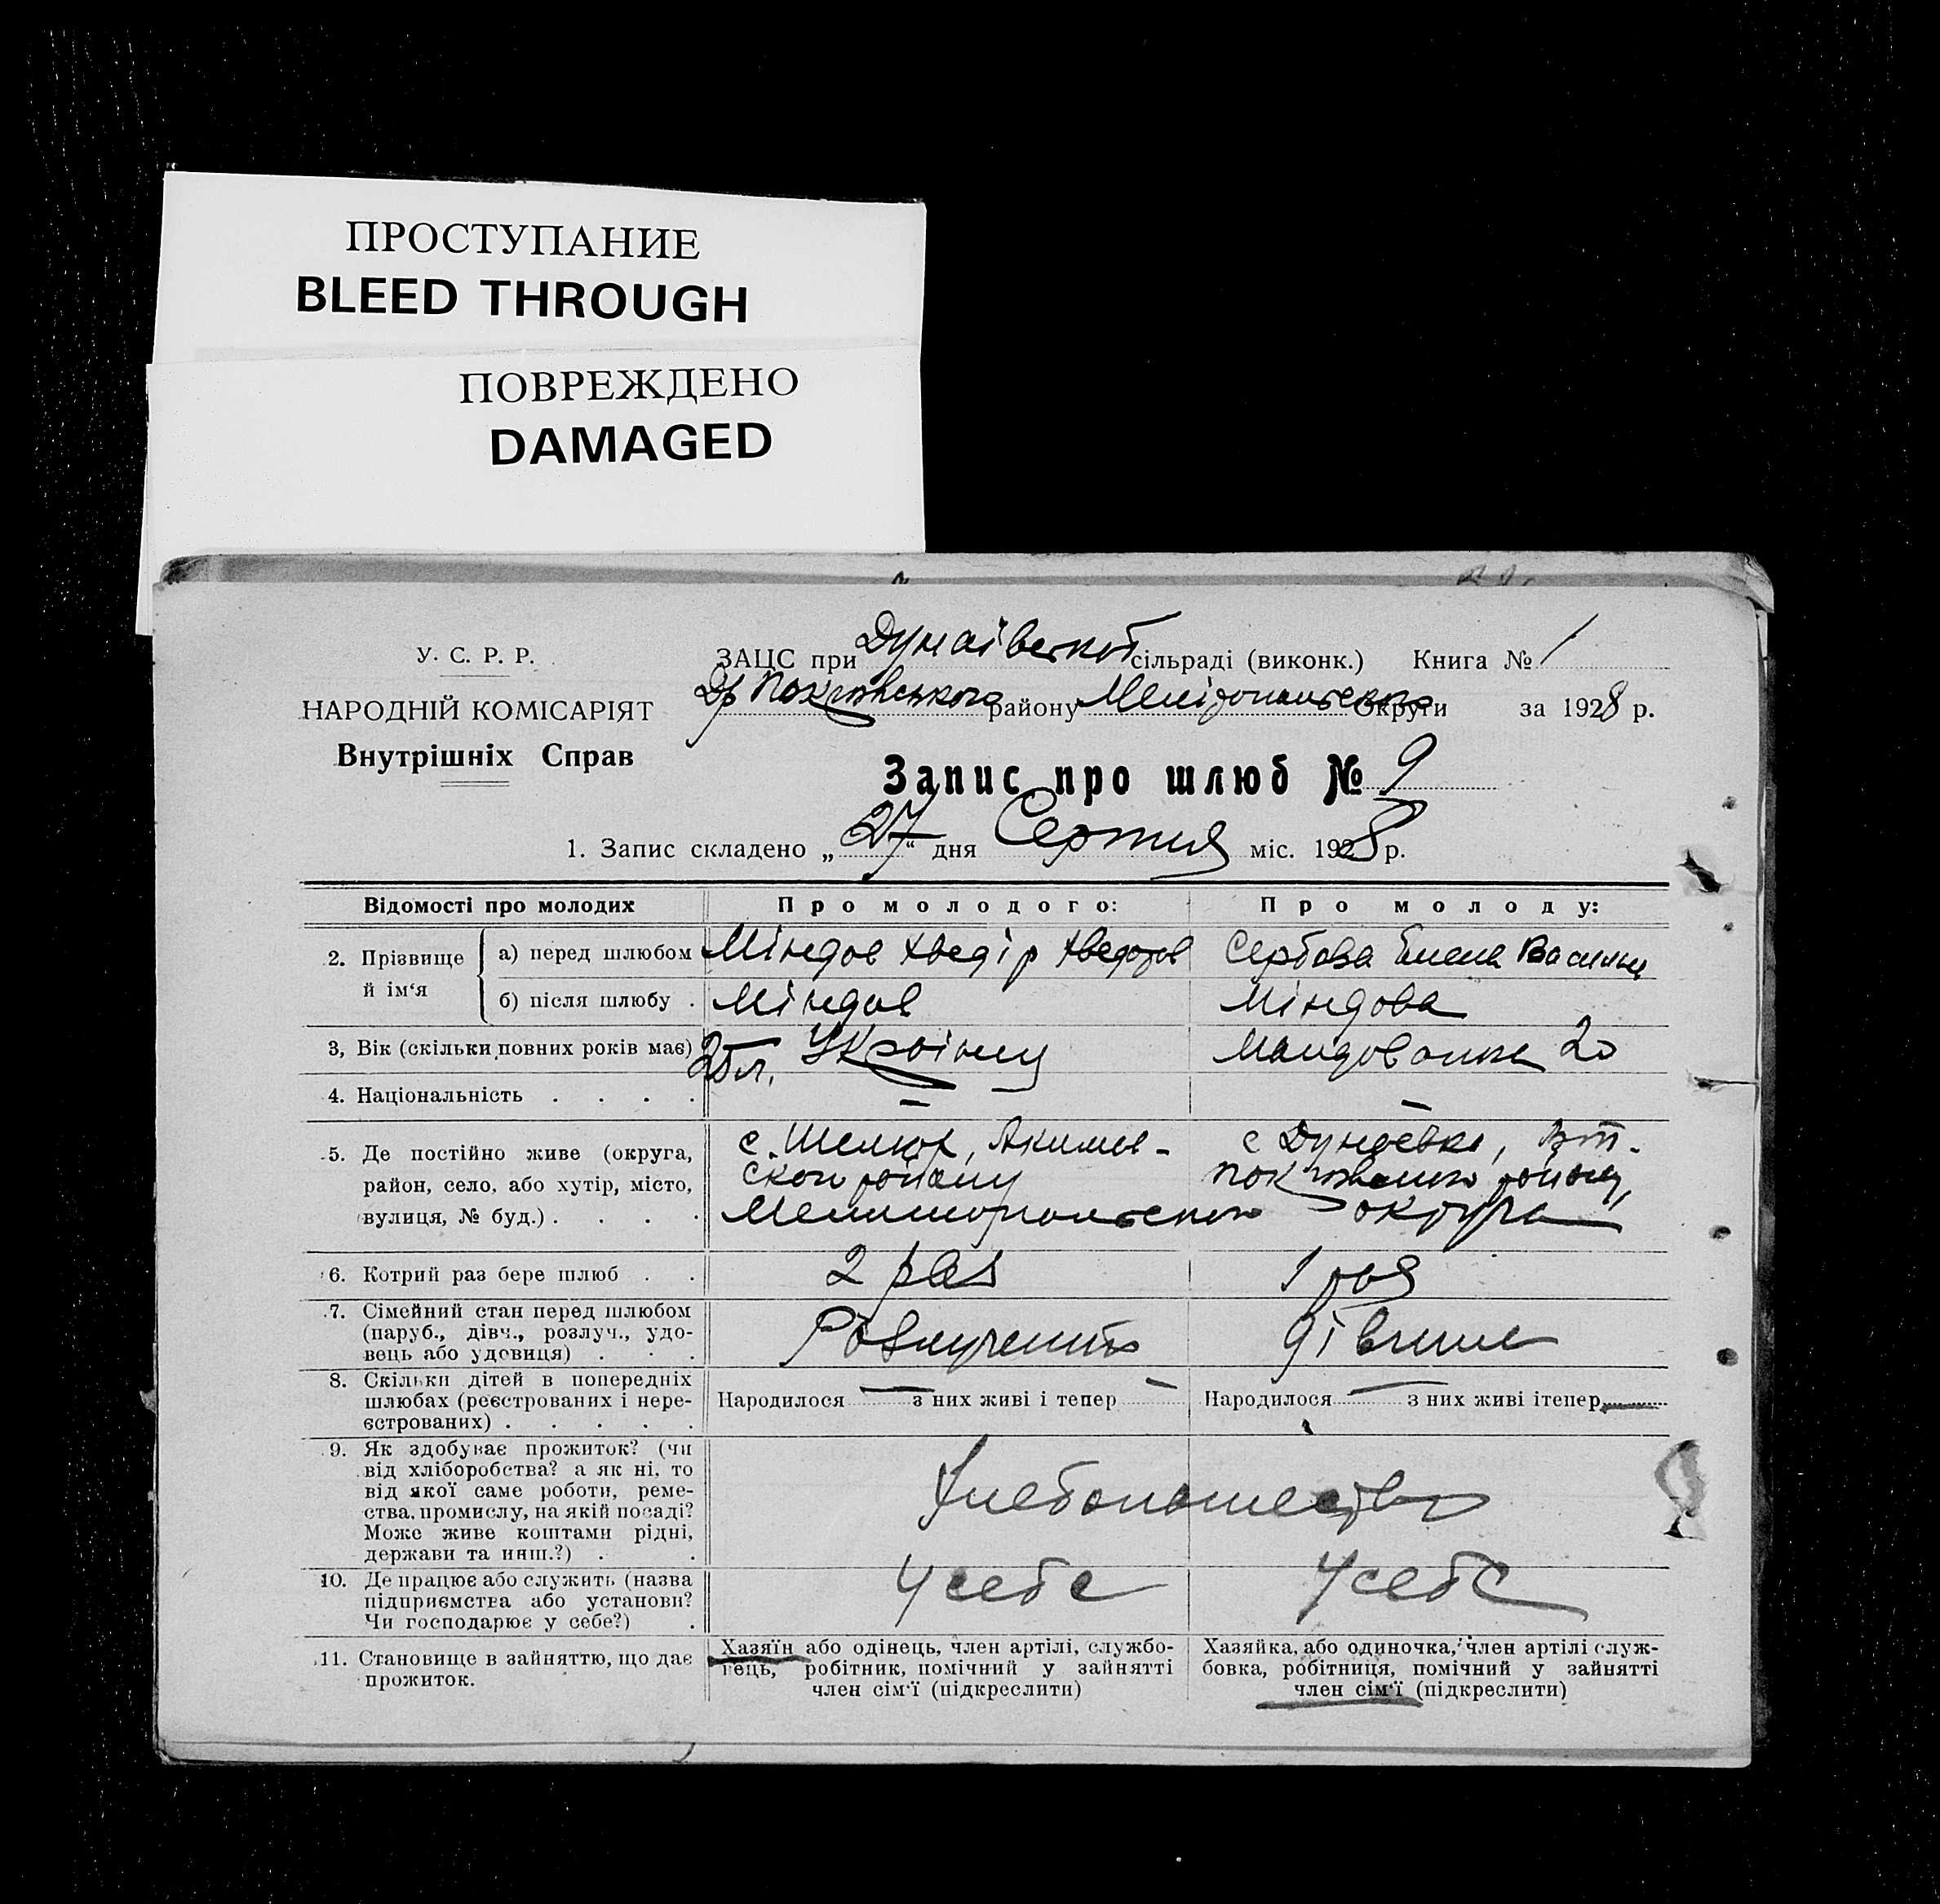 ПРОСТУПАНИЕ
BLEED THROUGH
ПОВРЕЖДЕНО
DAMAGED
У. С. Р. Р.
НАРОДНІЙ КОМІСАРІЯТ
Внутрішніх Справ
ЗАЦС при Дунаївской сільраді (виконк.) Книга № 1
Покровського району Мелітопольського Округи за 1928 р.
Запис про шлюб № 9
1. Запис складено „27“ дня Серпня міс. 1928 р.
Відомості про молодих
Про молодого:
Про молоду:
2. Прізвище й ім‘я
а) перед шлюбом
Міндов Хведір Хведоров
Сербова Елена
б) після шлюбу .
Міндов
Міндова
3, Вік (скільки повних років має)
25 л.
20
4. Національність . . . .
—
—
5. Де постійно живе (округа,
район, село, або хутір, місто,
вулиця, № буд.) . . . .
с. Шелюг, Акимов-
ского району
с Дунаевка,
Покровського району,
Мелитопольского округа
6. Котрий раз бере шлюб . .
2 раз
1 раз
7. Сімейний стан перед шлюбом
(паруб., дівч., розлуч., удо-
вець або удовиця) . . .
Розлучений
дівчина
8. Скільки дітей в попередніх
шлюбах (реєстрованих і нере-
єстрованих) . . . . .
Народилося — з них живі і тепер —
Народилося — з них живі ітепер —
9. Як здобуває прожиток? (чи
від хліборобства? а як ні, то
від якої саме роботи, реме-
ства, промислу, на якій посаді?
Може живе коштами рідні,
держави та инш.?) . .
Хлебопашество
10. Де працює або служить (назва
підприємства або установи?
Чи господарює у себе?) .
У себе
У себе
11. Становище в зайняттю, що дає
прожиток.
Хазяїн або одінець, член артілі, службо-
вець, робітник, помічний у зайнятті
член сім‘ї (підкреслити)
Хазяйка, або одиночка, член артілі служ-
бовка, робітниця, помічний у зайнятті
член сім‘ї (підкреслити)